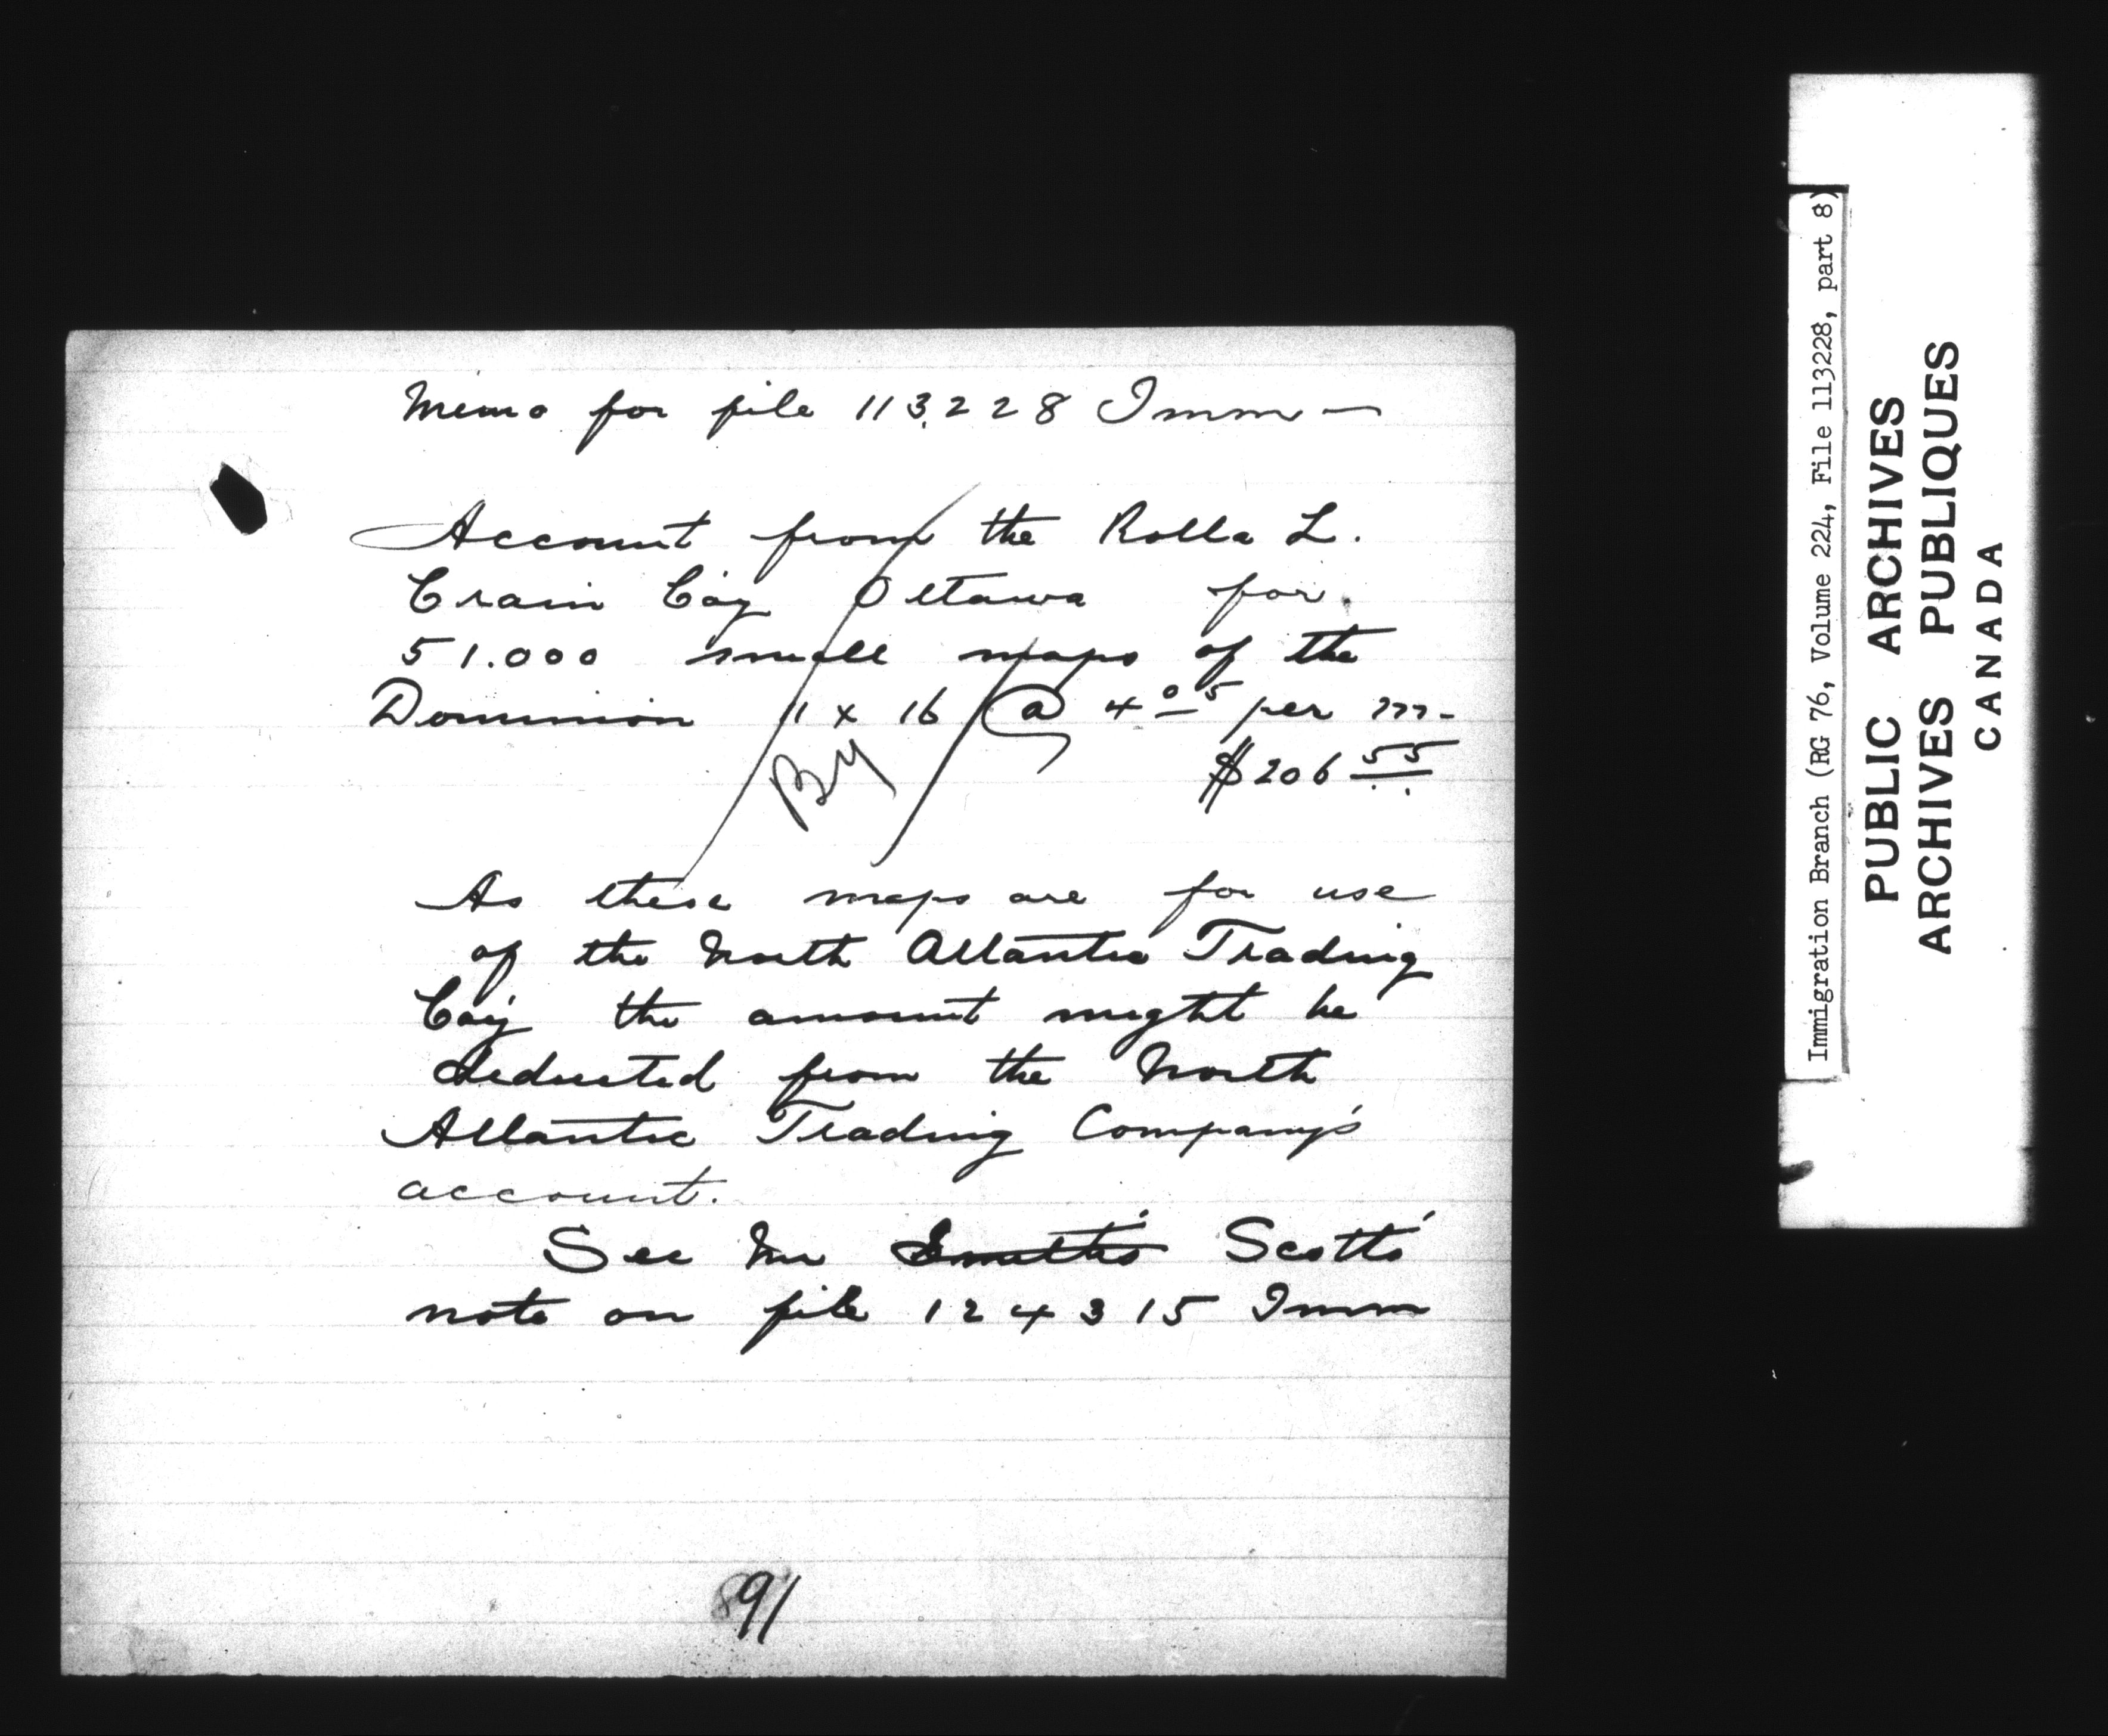 Memo for file 113,228 Imm —
Account from the Rolla L.
Crain Coy Ottawa for
51.000 small maps of the
Dominion 11 x 16 @ 4 05 per m.
$206 55
By
As these maps are for use
of the North Atlantic Trading
Coy the amount might be
deducted from the North
Atlantic Trading Company's
account.
See Mr Smith's Scott's
note on file 124315 Imm
91
Immigration Branch (RG 76, Volume 224, File 113228, part 8)
PUBLIC ARCHIVES
ARCHIVES PUBLIQUES
CANADA